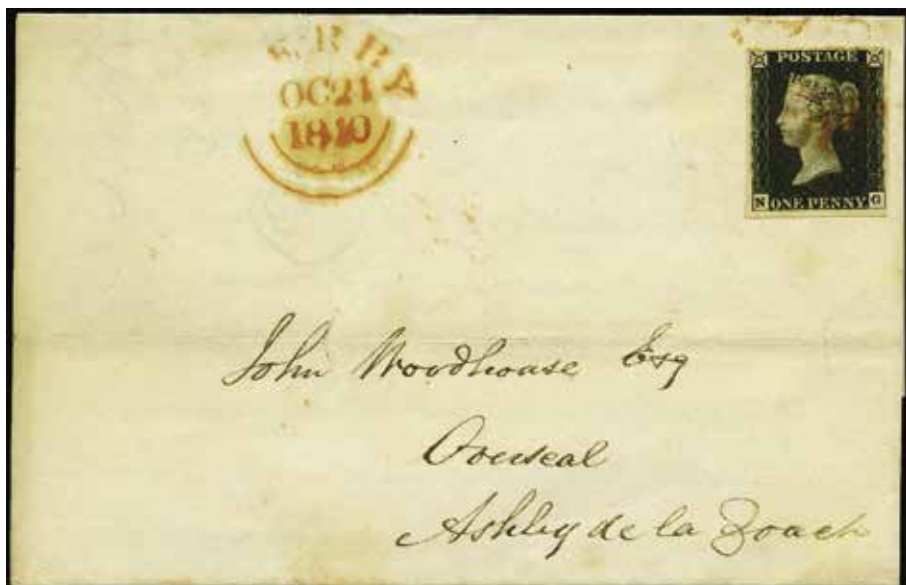 OC21
1840
POSTAGE
N ONE PENNY G
John Woodhouse Esq
Overseal
Ashby de la Zouch